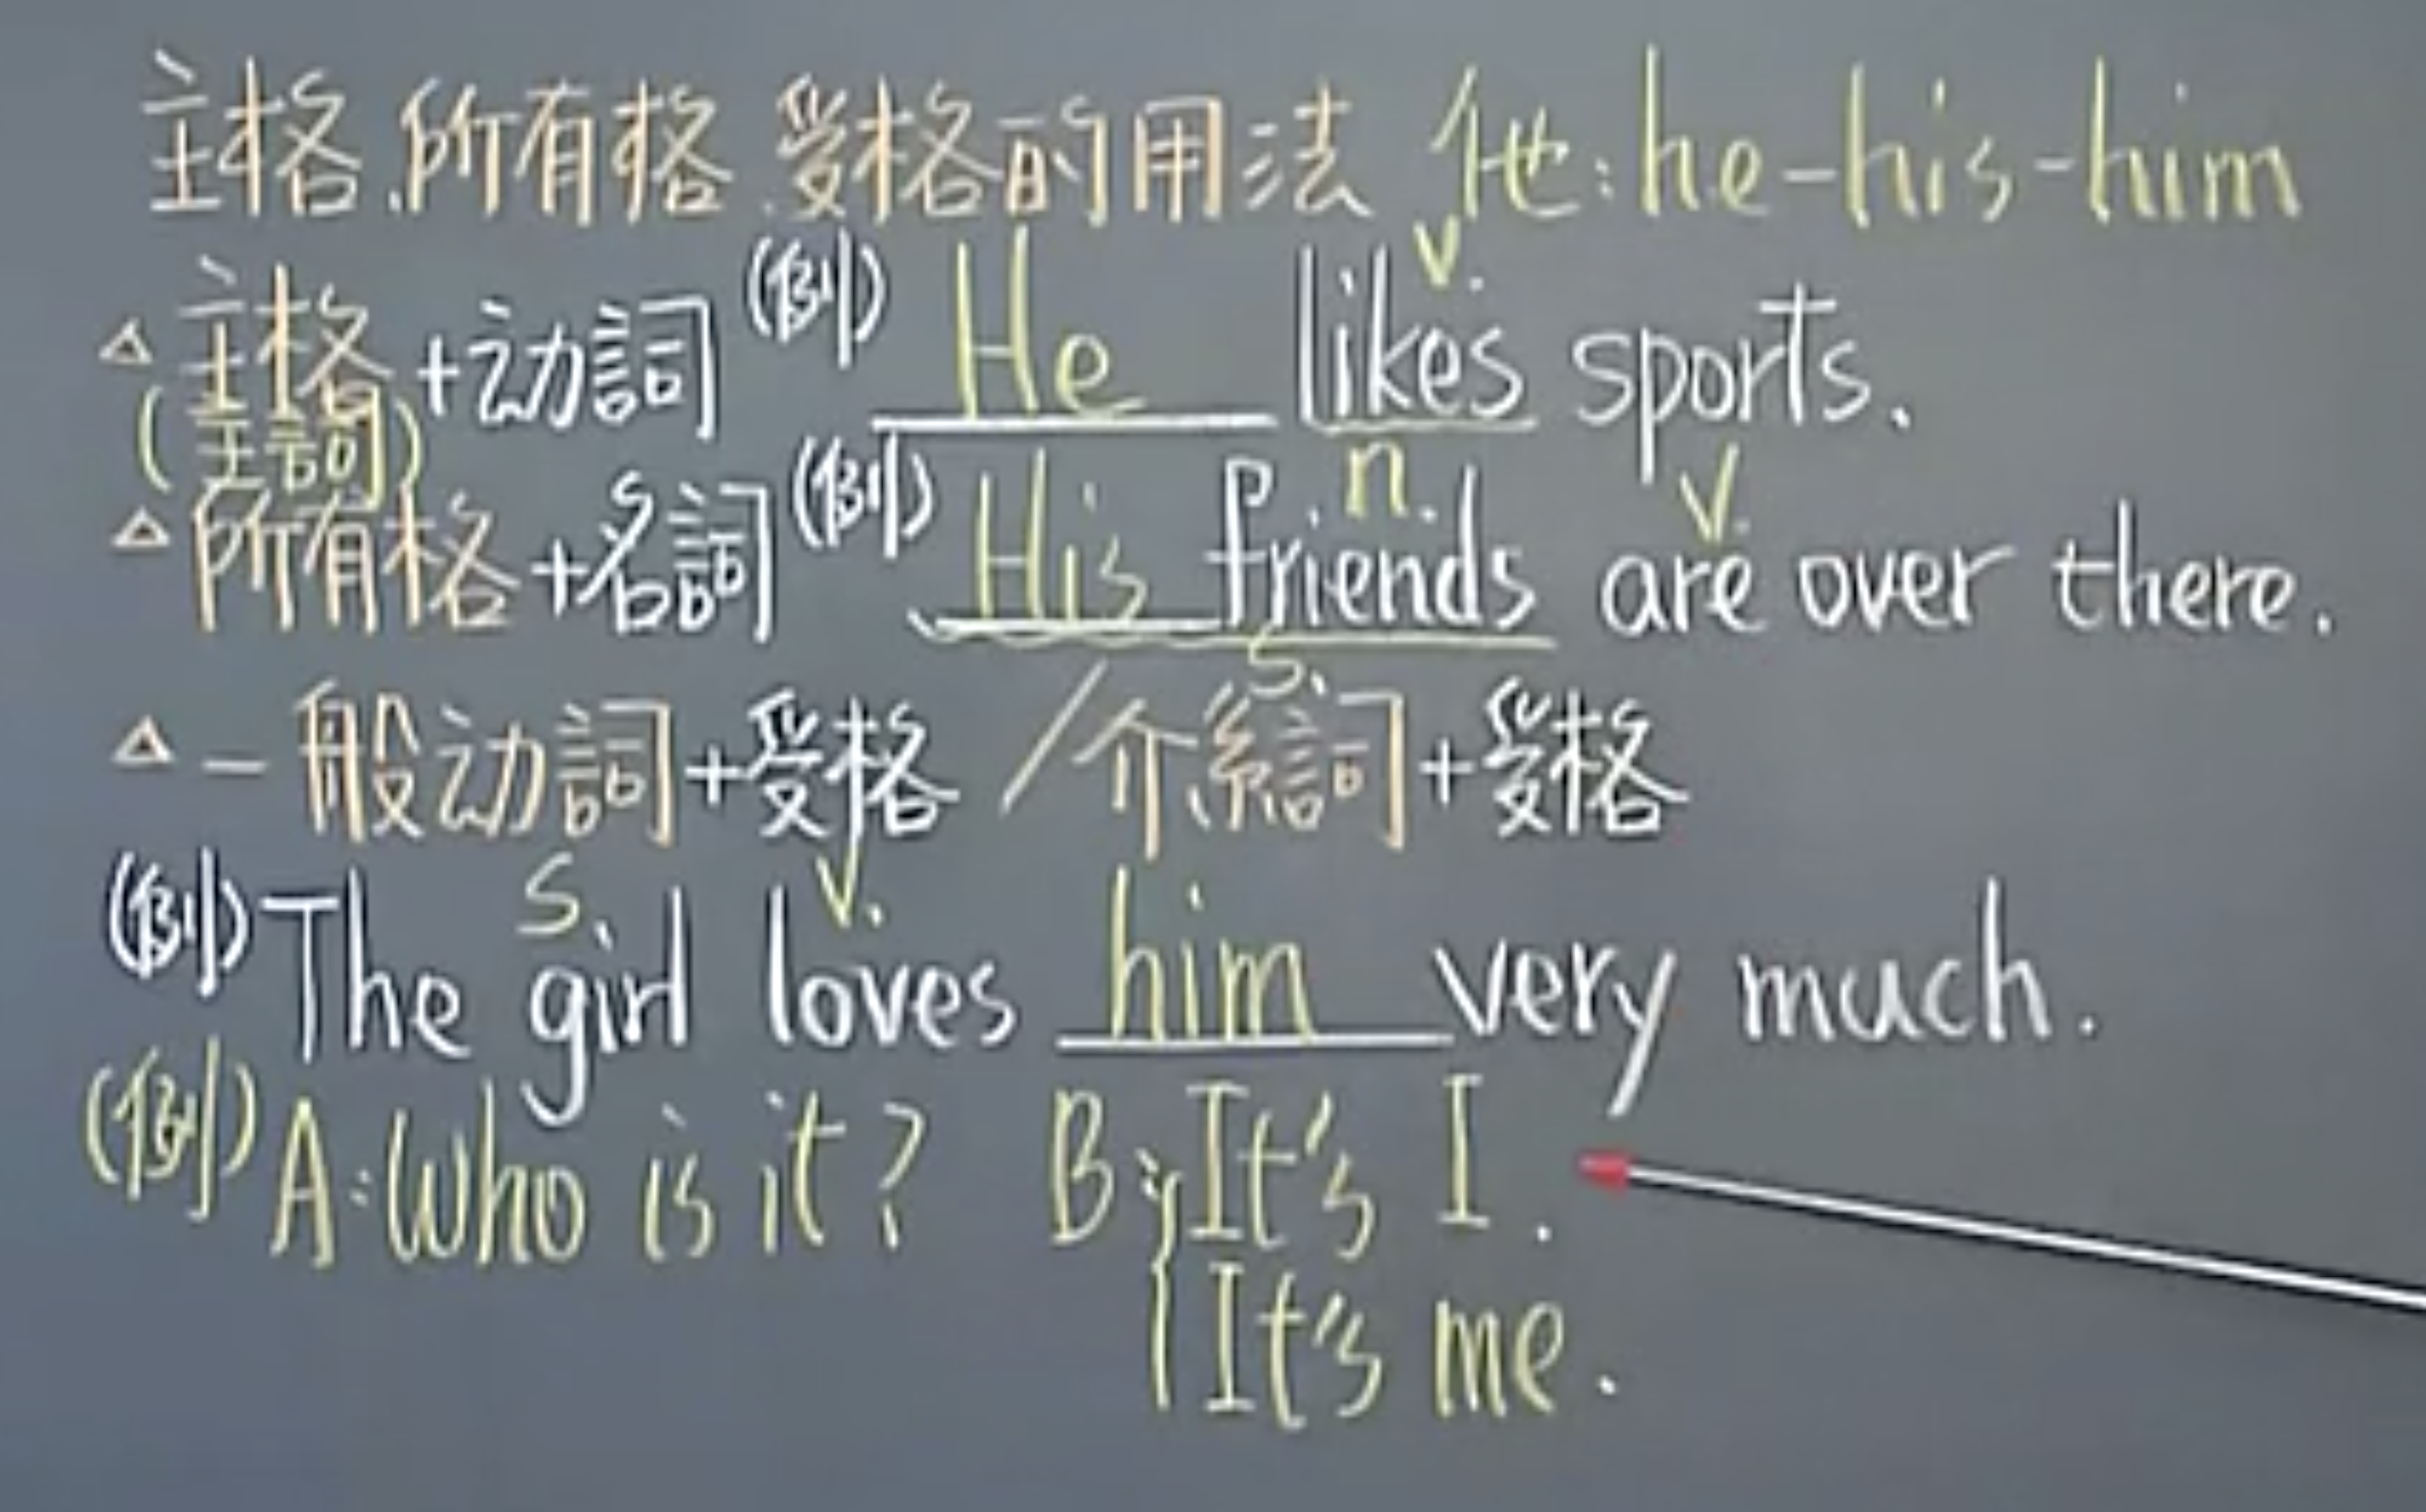 主格、所有格、受格的用法 他:he-his-him
△主格+动詞 (例) He likes sports.
v.
(主詞)
△所有格+名詞 (例) His friends are over there.
n. v.
s.
△一般动詞+受格/介系詞+受格
s. v.
(例) The girl loves him very much.
(例) A:Who is it? B:{It's I.
It's me.